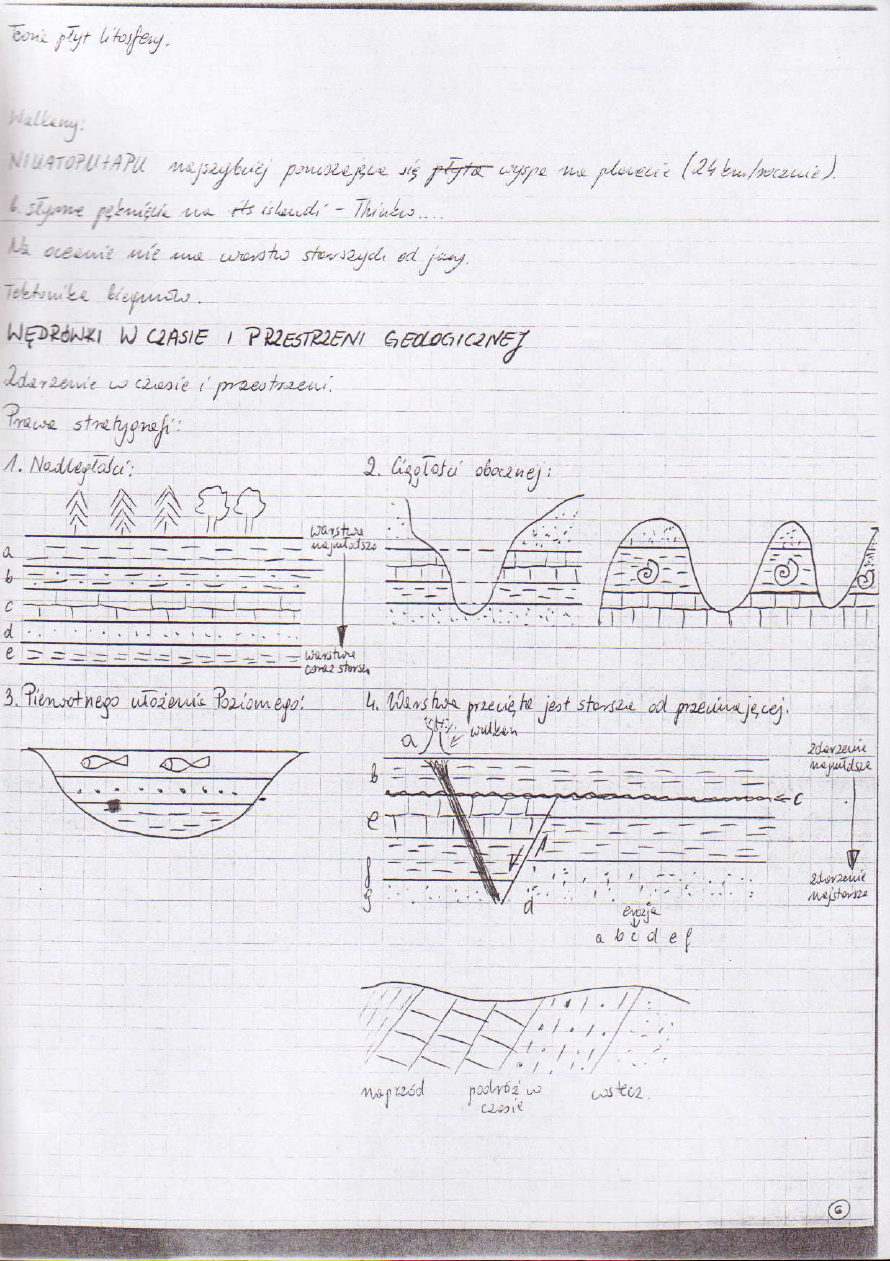 Teorie płyt litosfery.
Wulkany:
NIUATOPUTAPU najszybciej poruszająca się płyta wyspa na planecie (24 km/rocznie).
b. słynne pęknięcia na islandi - Thinkv....
Na oceanie nie ma warstw starszych od jury.
Tektonika biegunów.
WĘDRÓWKI W CZASIE I PRZESTRZENI GEOLOGICZNEJ
Zdarzenie w czasie i przestrzeni.
Prawa stratygrafi:
1. Nadległości:
2. Ciągłości obocznej:
warstwa
najmłodsza
a
b
c
d
e
warstwa
coraz starsza
3. Pierwotnego ułożenia Poziomego:
4. Warstwa przecięta jest starsza od przecinającej.
a
wulkan
zdarzenie
najmłodsze
b
c
e
f
g
d
zdarzenie
najstarsze
erozja
a b c d e f
naprzód
podróż w
czasie
wstecz.
6